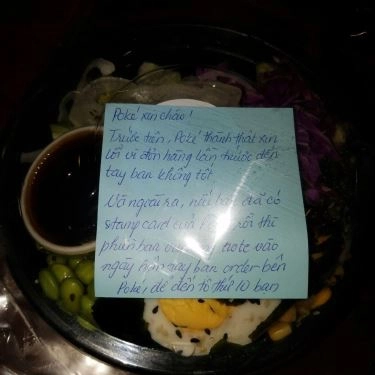 Poké xin chào!
Trước tiên, Poké thành thật xin
lỗi vì đơn hàng lần trước đến
tay bạn không tốt.
Và ngoài ra, nếu bạn đã có
stamp card của rồi thì
phiền bạn note vào
ngày hôm nay bạn order bên
Poké, để đến tô thứ 10 bạn